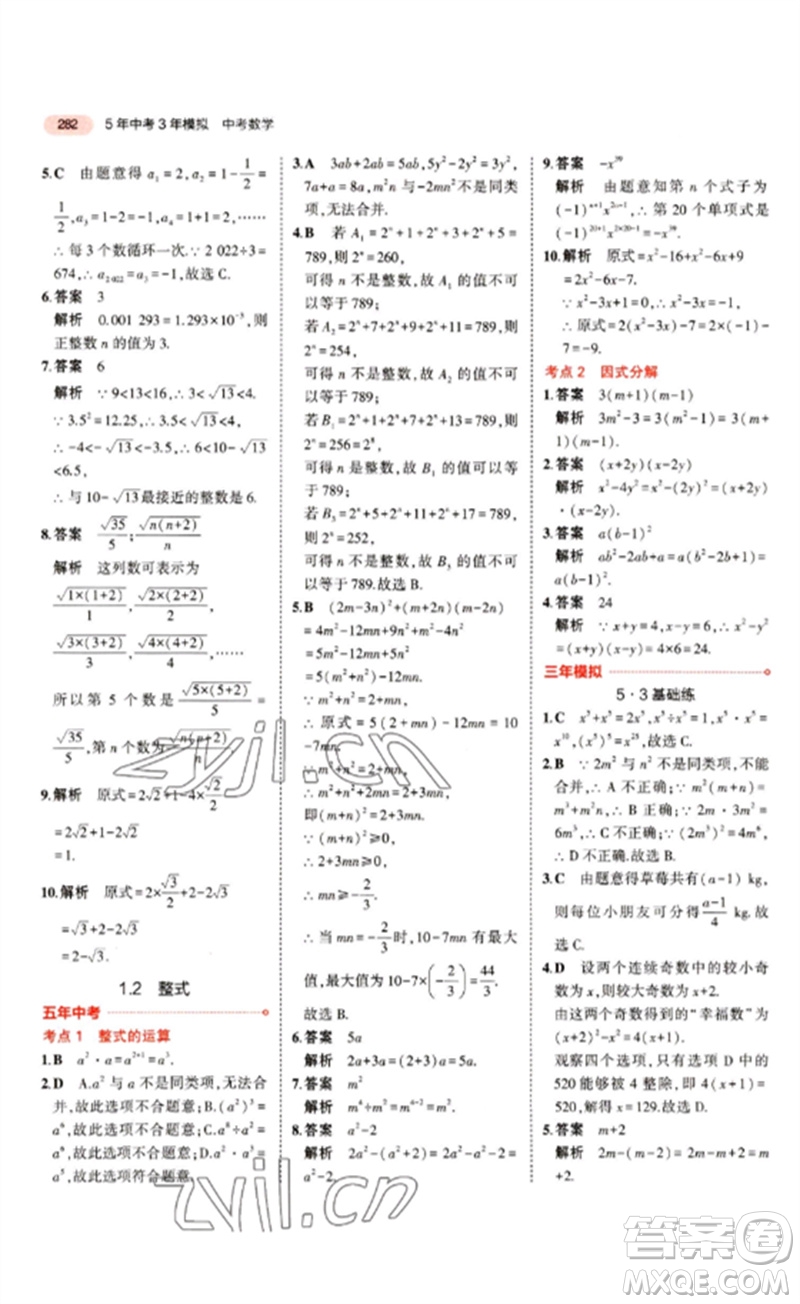 282 5年中考3年模拟 中考数学
5.C 由题意得 a₁=2,a₂=1-1/2=
1/2,a₃=1-2=-1,a₄=1+1=2,……
∴每3个数循环一次.∵2 022÷3=
674,∴a₂₀₂₂=a₃=-1,故选C.
6.答案 3
解析 0.001 293=1.293×10⁻³,则
正整数n的值为3.
7.答案 6
解析 ∵9<13<16,∴3<√13<4.
∵3.5²=12.25,∴3.5<√13<4,
∴-4<-√13<-3.5,∴6<10-√13
<6.5,
∴与10-√13最接近的整数是6.
8.答案 √35/5;√(n(n+2))/n
解析 这列数可表示为
√(1×(1+2))/1,√(2×(2+2))/2,
√(3×(3+2))/3,√(4×(4+2))/4,……
所以第5个数是√(5×(5+2))/5=
√35/5,第n个数为√(n(n+2))/n.
9.解析 原式=2√2+1-4×√2/2
=2√2+1-2√2
=1.
10.解析 原式=2×√3/2+2-2√3
=√3+2-2√3
=2-√3.
1.2 整式
五年中考
考点1 整式的运算
1.B a²·a=a²⁺¹=a³.
2.D A.a²与a不是同类项,无法合
并,故此选项不合题意;B.(a²)³=
a⁶,故此选项不合题意;C.a⁸÷a²=
a⁶,故此选项不合题意;D.a²·a³=
a⁵,故此选项符合题意.
3.A 3ab+2ab=5ab,5y²-2y²=3y²,
7a+a=8a,m²n与-2mn²不是同类
项,无法合并.
4.B 若A₁=2ⁿ+1+2ⁿ+3+2ⁿ+5=
789,则2ⁿ=260,
可得n不是整数,故A₁的值不可
以等于789;
若A₂=2ⁿ+7+2ⁿ+9+2ⁿ+11=789,则
2ⁿ=254,
可得n不是整数,故A₂的值不可
以等于789;
若B₁=2ⁿ+1+2ⁿ+7+2ⁿ+13=789,则
2ⁿ=256=2⁸,
可得n是整数,故B₁的值可以等
于789;
若B₃=2ⁿ+5+2ⁿ+11+2ⁿ+17=789,
则2ⁿ=252,
可得n不是整数,故B₃的值不可
以等于789.故选B.
5.B (2m-3n)²+(m+2n)(m-2n)
=4m²-12mn+9n²+m²-4n²
=5m²-12mn+5n²
=5(m²+n²)-12mn.
∵m²+n²=2+mn,
∴原式=5(2+mn)-12mn=10
-7mn.
∵m²+n²=2+mn,
∴(m+n)²=2+3mn,
即(m+n)²=2+3mn.
∵(m+n)²≥0,
∴2+3mn≥0,
∴mn≥-2/3.
∴当mn=-2/3时,原式有最大
值,最大值为10-7×(-2/3)=44/3.
故选B.
6.答案 5a
解析 2a+3a=(2+3)a=5a.
7.答案 m²
解析 m⁴÷m²=m⁴⁻²=m².
8.答案 a²-2
解析 2a²-(a²+2)=2a²-a²-2=
a²-2.
9.答案 -x³⁹
解析 由题意知第n个式子为
(-1)ⁿ⁺¹x²ⁿ⁻¹,∴第20个单项式是
(-1)²⁰⁺¹x²ˣ²⁰⁻¹=-x³⁹.
10.解析 原式=x²-16+x²-6x+9
=2x²-6x-7.
∵x²-3x+1=0,∴x²-3x=-1,
∴原式=2(x²-3x)-7=2×(-1)
-7=-9.
考点2 因式分解
1.答案 3(m+1)(m-1)
解析 3m²-3=3(m²-1)=3(m+
1)(m-1).
2.答案 (x+2y)(x-2y)
解析 x²-4y²=x²-(2y)²=(x+2y)
·(x-2y).
3.答案 a(b-1)²
解析 ab²-2ab+a=a(b²-2b+1)
=a(b-1)².
4.答案 24
解析 ∵x+y=4,x-y=6,∴x²-y²
=(x+y)(x-y)=4×6=24.
三年模拟
5·3基础练
1.C x⁵+x⁵=2x⁵,x⁵÷x⁵=1,x⁵·x⁵=
x¹⁰,(x⁵)⁵=x²⁵,故选C.
2.D ∵2m与3m²不是同类项,不能
合并,∴A不正确;∵2m·3m²=
6m³,∴C不正确;∵(2m)³=8m³,
∴D正确.故选D.
3.C 由题意得草莓共有(a-1) kg,
则每位小朋友可分得(a-1)/4 kg.故
选C.
4.D 设两个连续奇数中的较小奇
数为x,则较大奇数为x+2.
由这两个奇数得到的“幸福数”为
(x+2)²-x²=2(2x+2)=4(x+1).
观察四个选项,只有选项D中的
520能够被4整除,即4(x+1)=
520,解得x=129.故选D.
5.答案 m+2
解析 2m-(m-2)=2m-m+2=m
+2.
zyjl.cn
zyjl.cn
答案圈
MXQE.COM